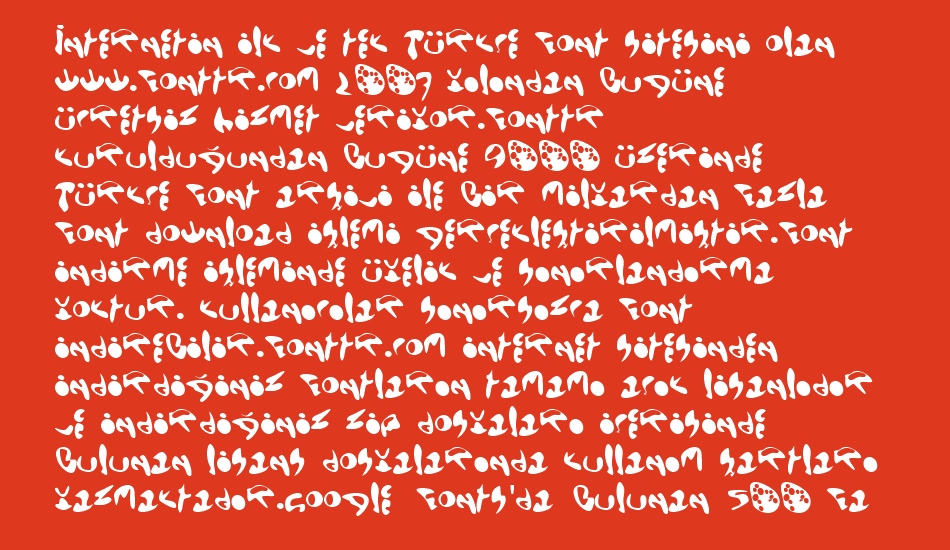 İnternetin ilk ve tek Türkçe font sitesini olan
www.fonttr.com 2007 yılından bugüne
ücretsiz hizmet veriyor.Fonttr
kurulduğundan bugüne 9000 üzerinde
Türkçe font arşivi ile bir milyardan fazla
font download işlemi gerçekleştirilmiştir.Font
indirme işleminde üyelik ve sınırlandırma
yoktur. Kullanıcılar sınırsızca font
indirebilir.Fonttr.com internet sitesinden
indirdiğiniz fontların tamamı açık lisanlıdır
ve indirdiğiniz zip dosyaları içerisinde
bulunan lisans dosyalarında kullanım şartları
yazmaktadır.Google Fonts'da bulunan 500 fa